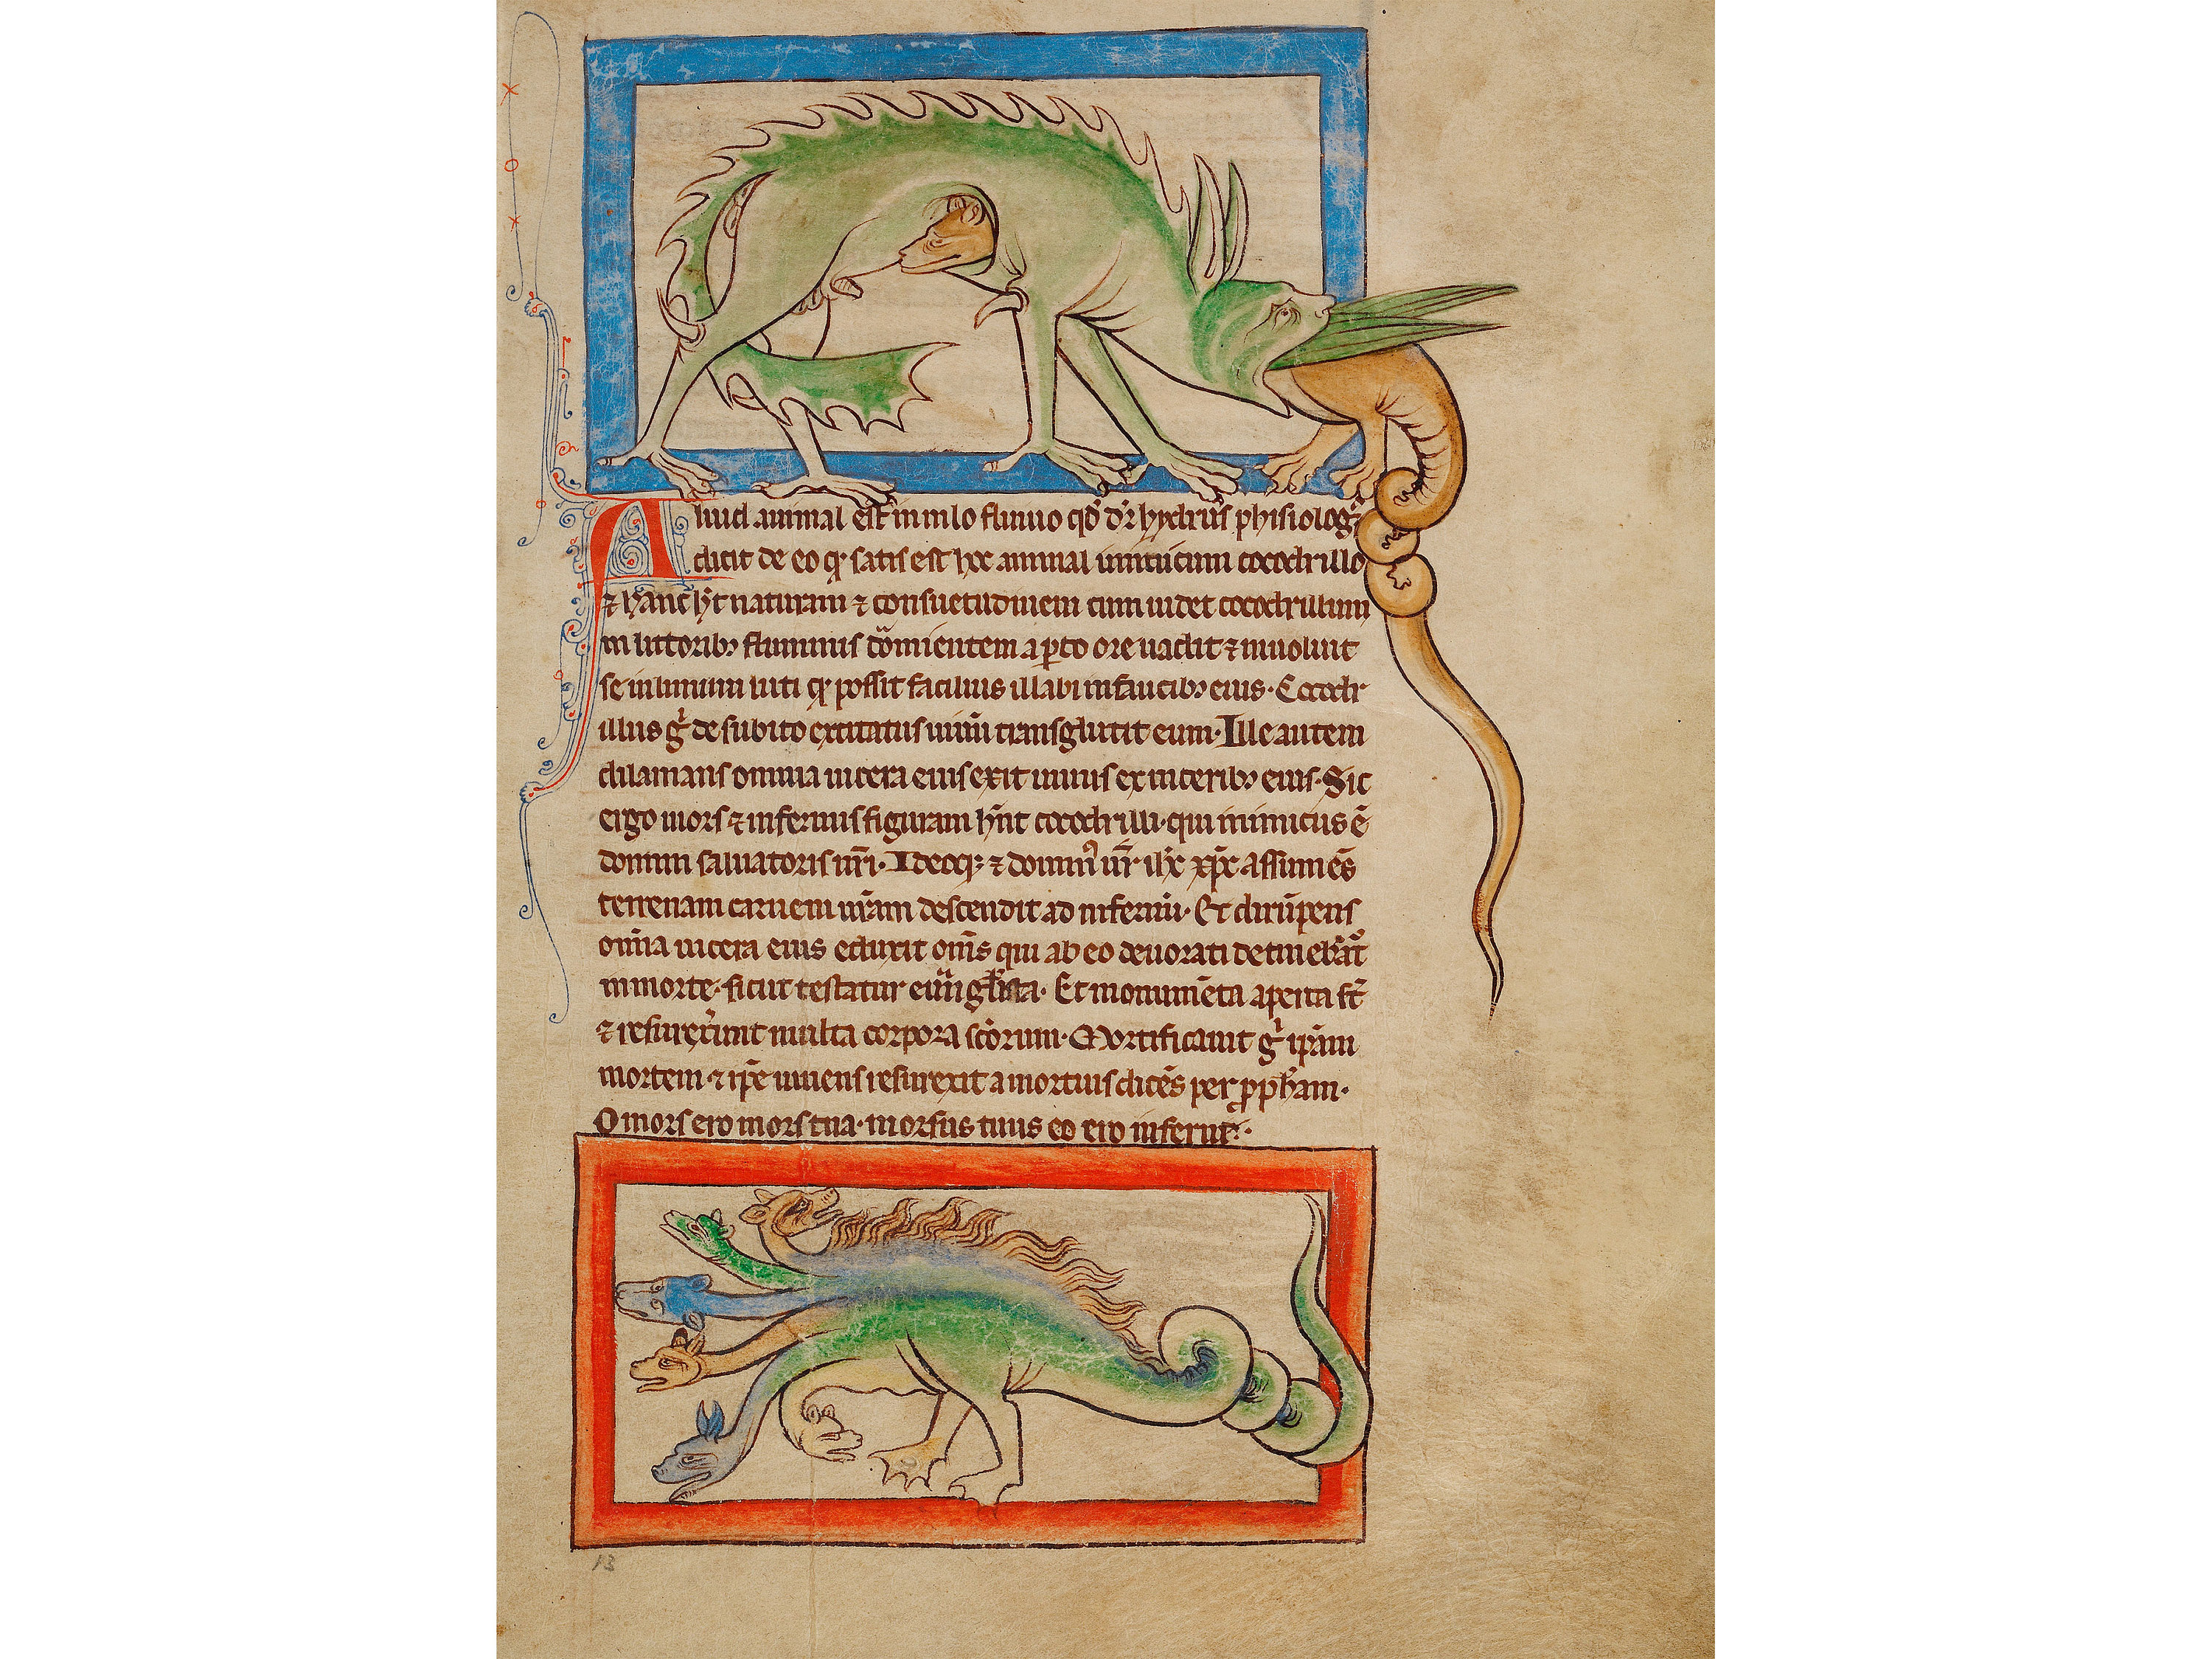 Aliud animal est in nilo fluuio qd̄ dr̄ hydrus phisiolog᷒
dicit de eo qͥ satis est hoc animal inimicum cocodrillo
⁊ hanc ht̄ naturam ⁊ consuetudinem cum uidet cocodrillum
in littorib; fluminis dormientem aꝑto ore uadit ⁊ inuoluit
se in limum luti qͦ possit facilius illabi in faucib; eius. Cocodr
illus gͥ de subito excitatus uiuū transglutit eum. Ille autem
dilanians omnia uicera eius exit uiuus ex uicerib; eius. Sic
ergo mors ⁊ infernus figuram hn̄t cocodrilli. qui inimicus ē
domini saluatoris nr̄i. Ideoq; ⁊ dominꝰ nr̄ ih̄c xp̄c assumēs
terrenam carnem nr̄am descendit ad infernū. Et dirūpens
om̄ia uicera eius eduxit om̄s qui ab eo deuorati detinebāt᷑
in morte. sicut testatur euūgl̄ista. Et monumēta aperta st̄
⁊ resurex̄unt multa corpora sc̄orum. Mortificauit gͥ ip̄am
mortem ⁊ ip̄e uiuens resurexit a mortuis dicēs per ꝓph̄am.
O mors ero mors tua. morsus tuus eo ero inferne.
13